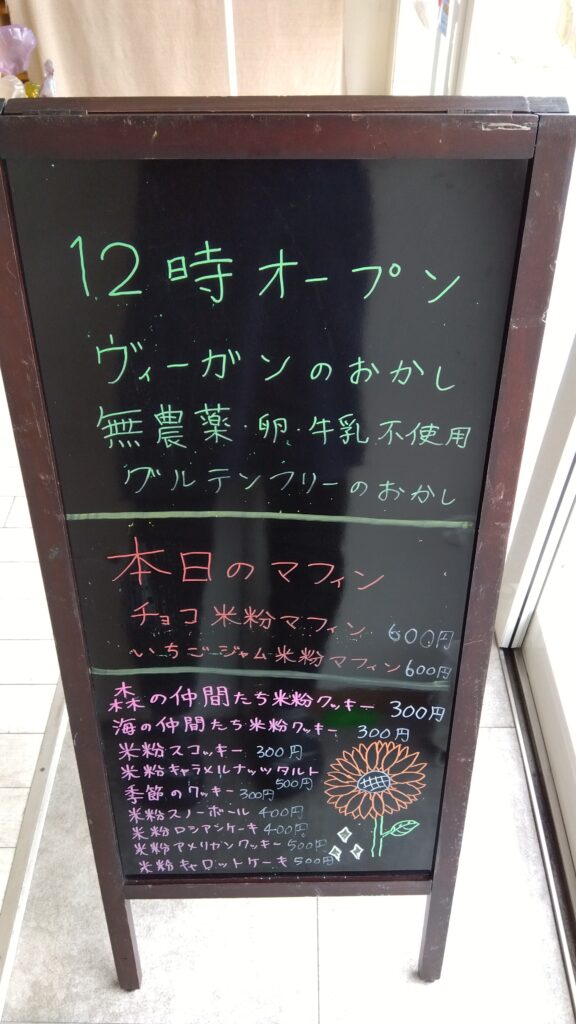 12時オープン
ヴィーガンのおかし
無農薬・卵・牛乳不使用
グルテンフリーのおかし
本日のマフィン
チョコ米粉マフィン 600円
いちごジャム米粉マフィン 600円
森の仲間たち米粉クッキー 300円
海の仲間たち米粉クッキー 300円
米粉スコッキー 300円
米粉キャラメルナッツタルト 500円
季節のクッキー 300円
米粉スノーボール 400円
米粉ロシアンケーキ 400円
米粉アメリカンクッキー 500円
米粉キャロットケーキ 500円